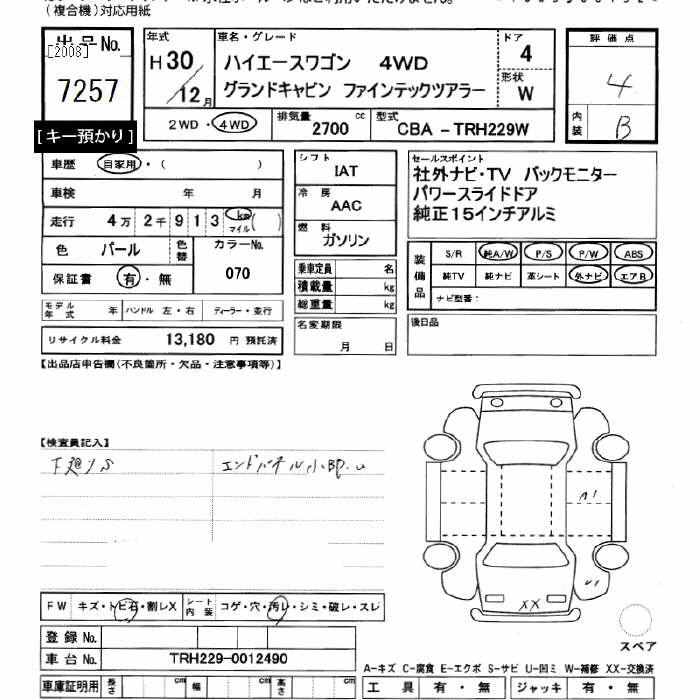 (複合機)対応用紙
出品No.
[2008]
7257
[キー預かり]
年式
H30/12月
車名・グレード
ハイエースワゴン 4WD
グランドキャビン ファインテックツアラー
ドア
4
形状
W
2WD・4WD
排気量 2700 cc
型式 CBA-TRH229W
評価点
4
内装
B
車歴 自家用・( )
車検 年 月
走行 4万2千913 km マイル( )
色 パール 色替
カラーNo.
070
保証書 有・無
モデル年式 年 ハンドル 左・右 ディーラー・並行
リサイクル料金 13,180 円 預託済
シフト
IAT
冷房
AAC
燃料
ガソリン
乗車定員 名
積載量 kg
総重量 kg
名変期限
月 日
セールスポイント
社外ナビ・TV バックモニター
パワースライドドア
純正15インチアルミ
装備品
S/R 純A/W P/S P/W ABS
純TV 純ナビ 革シート 外ナビ エアB
ナビ型番:
後日品
【出品店申告欄(不良箇所・欠品・注意事項等)】
【検査員記入】
下廻りS
A1
U1
XX
FW キズ・トビ石・割レX
シート内装 コゲ・穴・汚レ・シミ・破レ・スレ
登録No.
車台No. TRH229-0012490
車庫証明用 長さ cm 幅 cm 高さ cm
スペア
A-キズ C-腐食 E-エクボ S-サビ U-凹ミ W-補修 XX-交換済
工具 有・無 ジャッキ 有・無